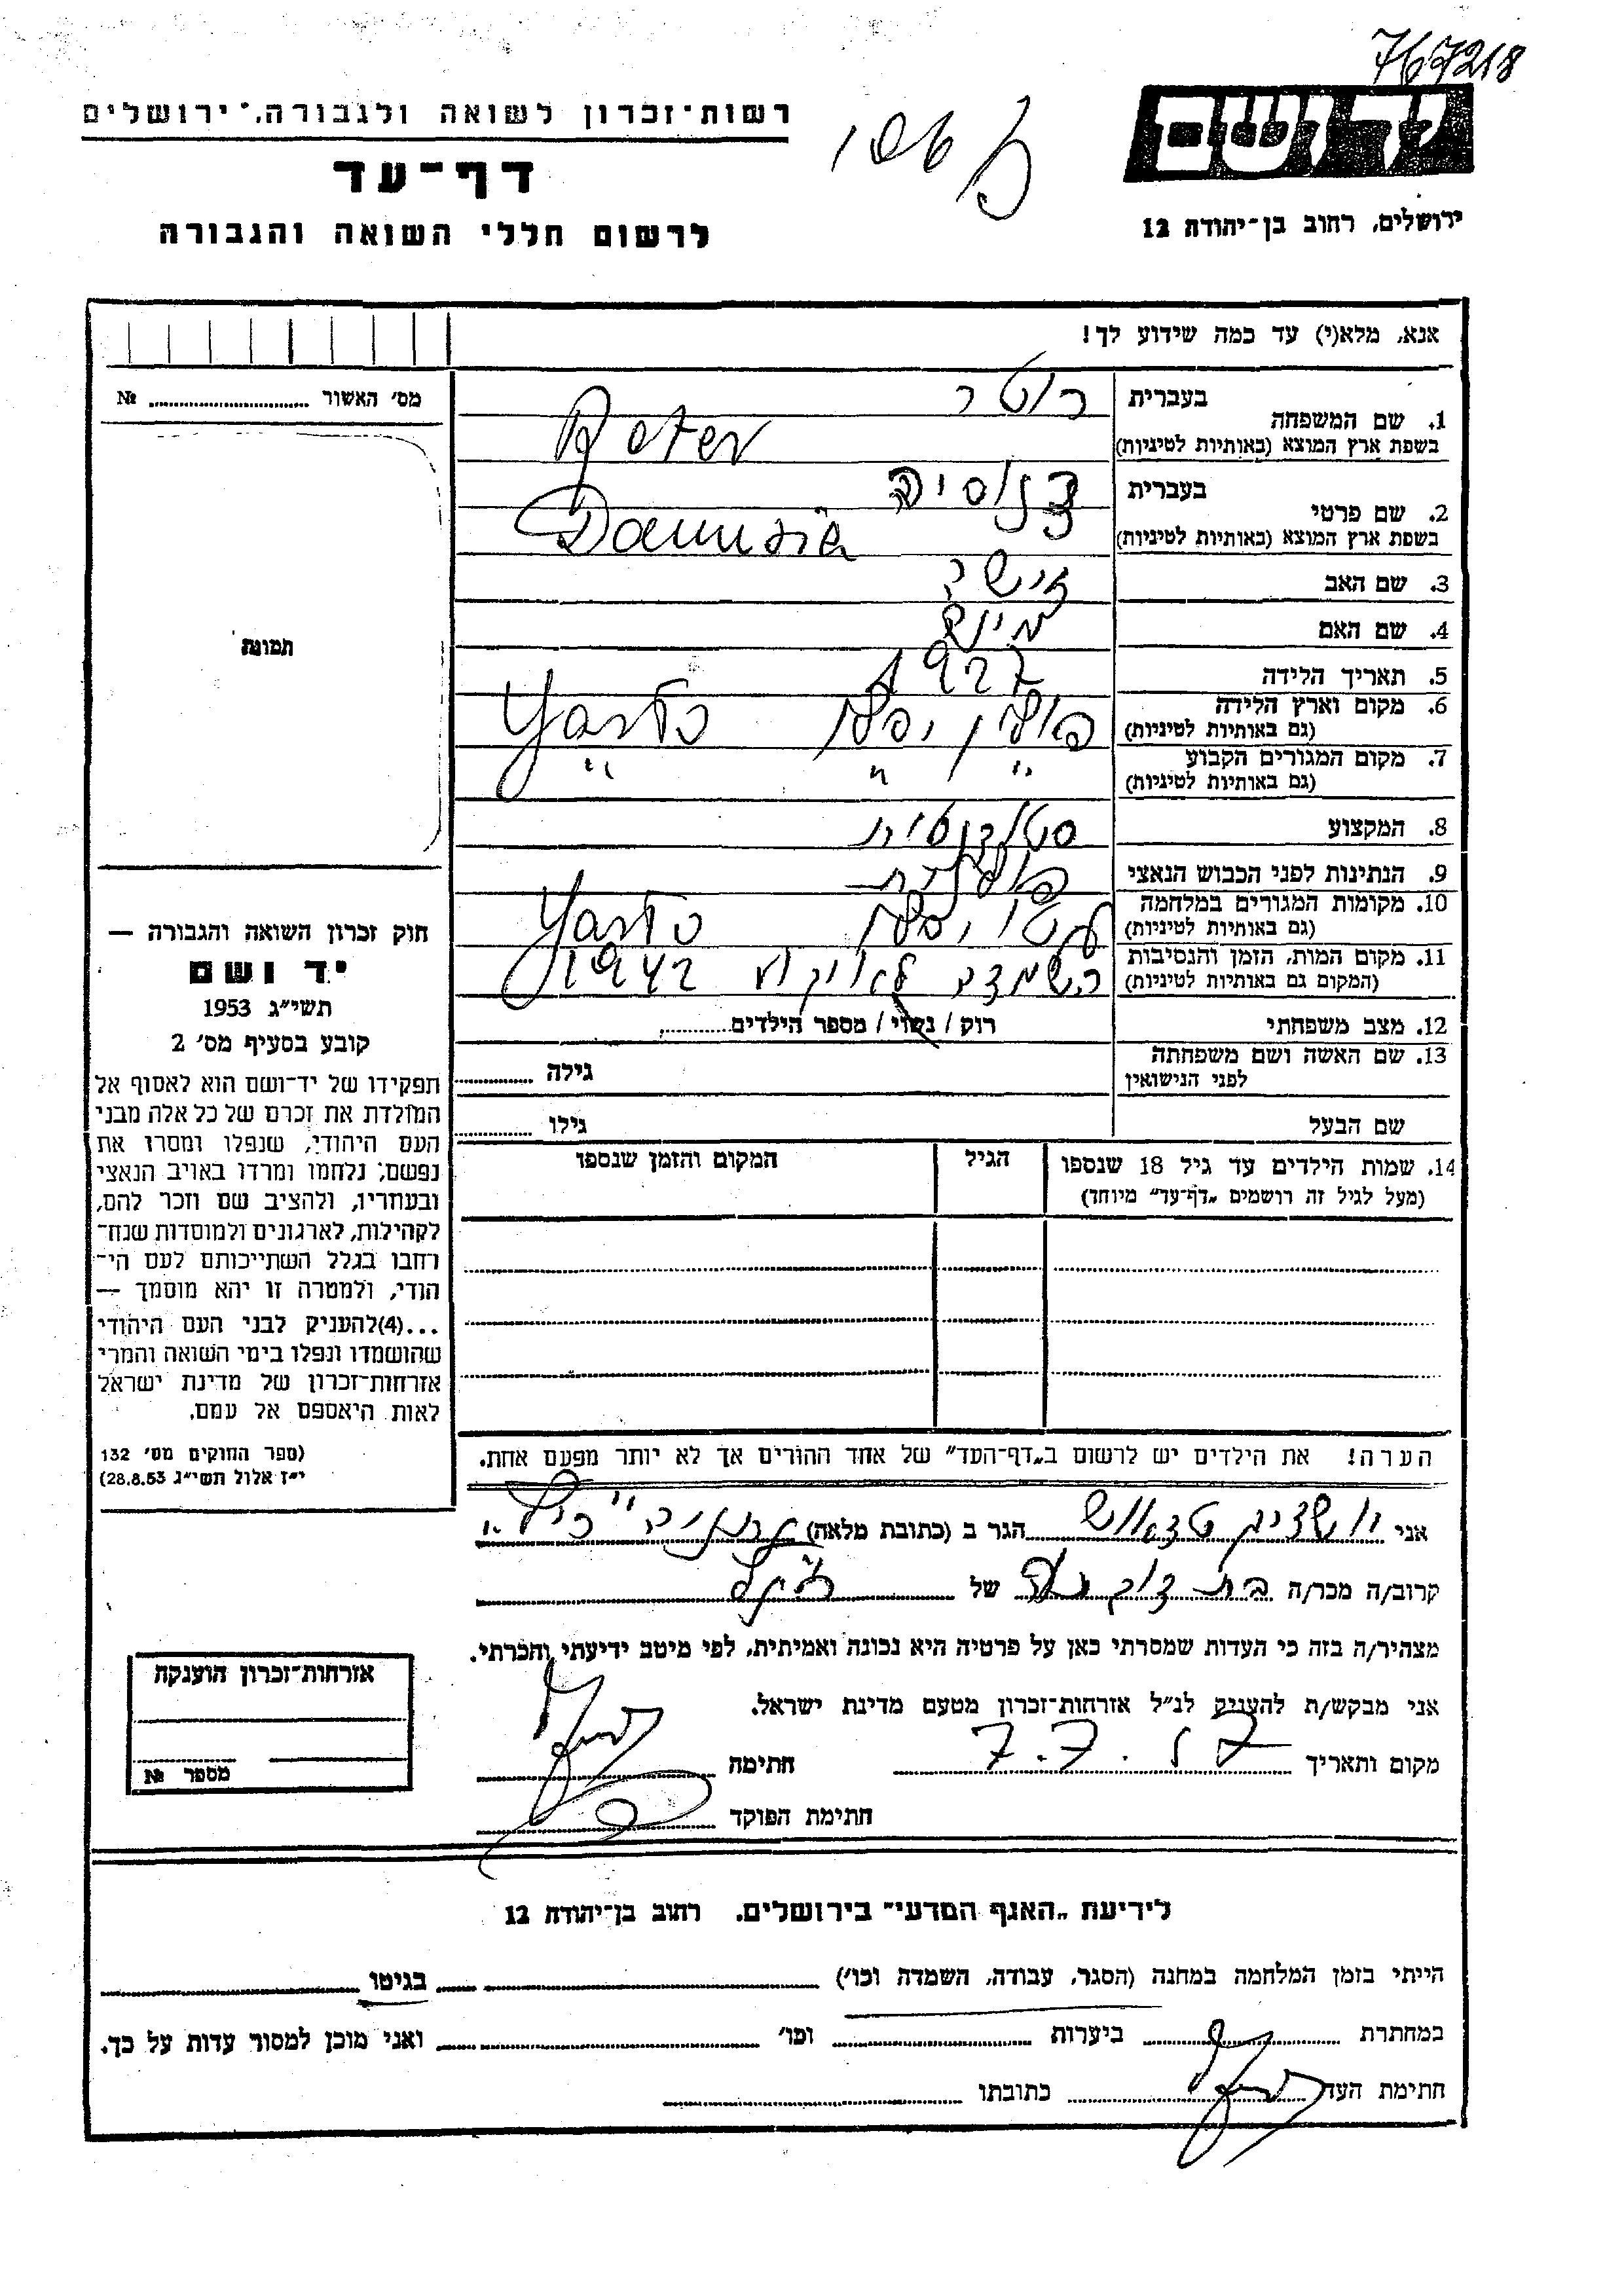 767218
יד ושם
רשות־זכרון לשואה ולגבורה, ירושלים
דף־עד
לרשום חללי השואה והגבורה
ירושלים, רחוב בן־יהודה 12
אנא, מלא(י) עד כמה שידוע לך!
מס' האשור № ........
תמונה
1. שם המשפחה בעברית רוטר
בשפת ארץ המוצא (באותיות לטיניות) Roter
2. שם פרטי בעברית דנוסיה
בשפת ארץ המוצא (באותיות לטיניות) Danusia
3. שם האב
4. שם האם
5. תאריך הלידה 1927
6. מקום וארץ הלידה
(גם באותיות לטיניות) פולין יסלו Yasło
7. מקום המגורים הקבוע
(גם באותיות לטיניות) " " "
8. המקצוע סטודנטית
9. הנתינות לפני הכבוש הנאצי פולנית
10. מקומות המגורים במלחמה
(גם באותיות לטיניות) יסלו Yasło
11. מקום המות, הזמן והנסיבות
(המקום גם באותיות לטיניות) 1942
12. מצב משפחתי רוק / נשוי / מספר הילדים........
13. שם האשה ושם משפחתה
לפני הנישואין גילה ........
שם הבעל גילו ........
14. שמות הילדים עד גיל 18 שנספו הגיל המקום והזמן שנספו
(מעל לגיל זה רושמים „דף־עד" מיוחד)
הערה! את הילדים יש לרשום ב„דף־העד" של אחד ההורים אך לא יותר מפעם אחת.
חוק זכרון השואה והגבורה —
יד ושם
תשי"ג 1953
קובע בסעיף מס' 2
תפקידו של יד־ושם הוא לאסוף אל
המולדת את זכרם של כל אלה מבני
העם היהודי, שנפלו ומסרו את
נפשם, נלחמו ומרדו באויב הנאצי
ובעוזריו, ולהציב שם וזכר להם,
לקהילות, לארגונים ולמוסדות שנח־
רבו בגלל השתייכותם לעם הי־
הודי, ולמטרה זו יהא מוסמך —
...(4)להעניק לבני העם היהודי
שהושמדו ונפלו בימי השואה והמרי
אזרחות־זכרון של מדינת ישראל
לאות היאספם אל עמם.
(ספר החוקים מס' 132
י"ז אלול תשי"ג 28.8.53)
אני הגר ב (כתובת מלאה)
קרוב/ה מכר/ה בת דוד של
מצהיר/ה בזה כי העדות שמסרתי כאן על פרטיה היא נכונה ואמיתית, לפי מיטב ידיעתי והכרתי.
אני מבקש/ת להעניק לנ"ל אזרחות־זכרון מטעם מדינת ישראל.
מקום ותאריך 7.7. חתימה
חתימת הפוקד
אזרחות־זכרון הוענקה
מספר №
לידיעת „האגף המדעי" בירושלים, רחוב בן־יהודה 12
הייתי בזמן המלחמה במחנה (הסגר, עבודה, השמדה וכו') ........ בגיטו ........
במחתרת ........ ביערות ........ וכו' ........ ואני מוכן למסור עדות על כך.
חתימת העד ........ כתובתו ........